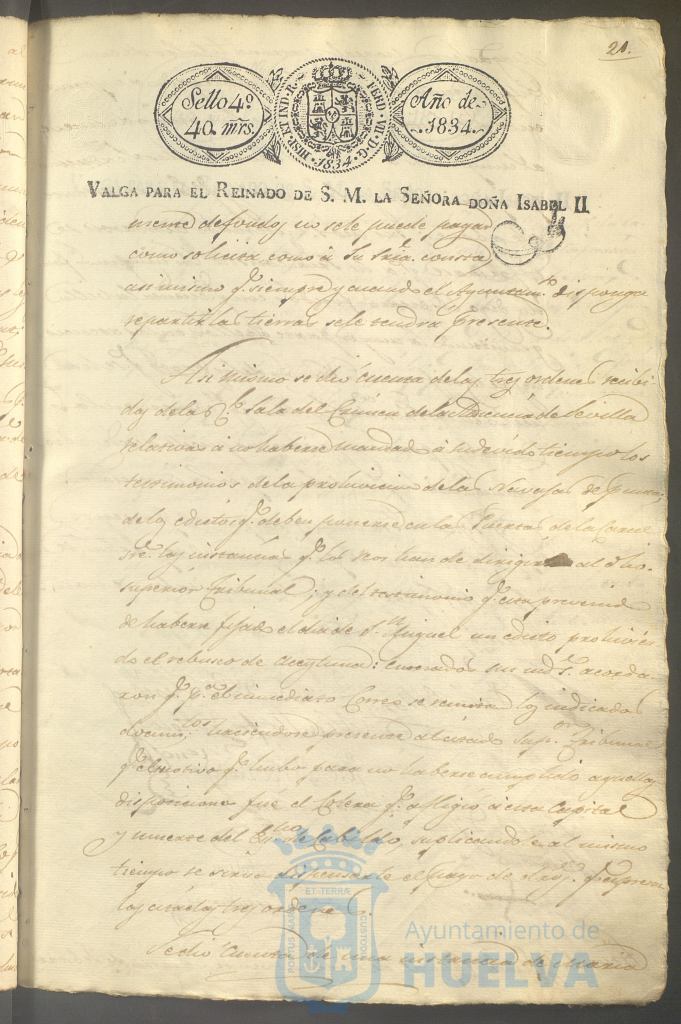 21.
Sello 4º
40. mrs.
HISP. ET IND. R. FERD. VII. D. G.
1834
Año de
1834.
VALGA PARA EL REINADO DE S. M. LA SEÑORA DOÑA ISABEL II
de fondos no se le puede pagar
como solicita, como á su consta
asimismo qe. siempre y cuando el Ayuntamto. disponga
repartir las tierras se le tendra presente.
Asi mismo se dió cuenta de las tres ordenes recibi-
das de la Rl. Sala del Crimen de la Audiencia de Sevilla
relativas á no haberse mandado á su devido tiempo los
testimonios de la prohivicion de las
de los edictos qe. deben ponerse en las Puertas de la Carcel
las instancias qe. los reos han de dirigir al dho.
superior Tribunal; y del testimonio qe. esta prevenido
de haberse fijado el dia de Sn. Miguel un edicto prohivien-
do el rebusco de aceytuna: enterados sus mds. acorda-
ron qe. pr. el inmediato Correo se remitan los indicados
documtos. haciendose presente al citado Supor. Tribunal
qe. el motivo qe. hubo para no haberse cumplido aquellas
disposiciones fué el Colera qe. afligió á esta Capital
y muerte del Essno. de Cabildo, suplicandole al mismo
tiempo se sirva dispensarle el pago de qe. espresan
las citadas tres ordenes.
Se dió cuenta de una instancia de Maria
PORTUS MARIS ET TERRAE CUSTODIA
Ayuntamiento de
HUELVA